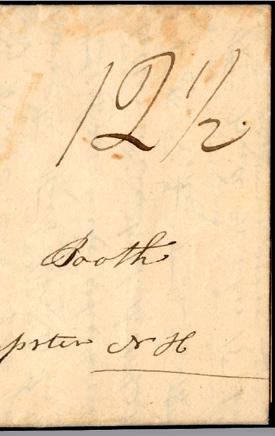 12 1/2
Booth
pster N H